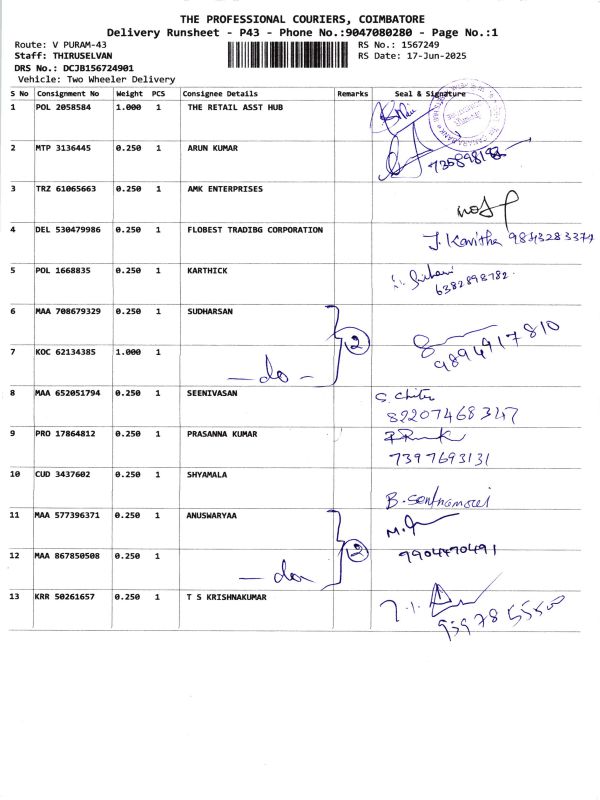 THE PROFESSIONAL COURIERS, COIMBATORE
Delivery Runsheet - P43 - Phone No.:9047080280 - Page No.:1
Route: V PURAM-43
RS No.: 1567249
Staff: THIRUSELVAN
RS Date: 17-Jun-2025
DRS No.: DCJB156724901
Vehicle: Two Wheeler Delivery
S No Consignment No Weight PCS Consignee Details Remarks Seal & Signature
1 POL 2058584 1.000 1 THE RETAIL ASST HUB
2 MTP 3136445 0.250 1 ARUN KUMAR
3 TRZ 61065663 0.250 1 AMK ENTERPRISES
4 DEL 530479986 0.250 1 FLOBEST TRADIBG CORPORATION J. Kavitha 9843283374
5 POL 1668835 0.250 1 KARTHICK
6382898782
6 MAA 708679329 0.250 1 SUDHARSAN 2
9894917810
7 KOC 62134385 1.000 1
—do—
8 MAA 652051794 0.250 1 SEENIVASAN
82207468347
9 PRO 17864812 0.250 1 PRASANNA KUMAR
7397693131
10 CUD 3437602 0.250 1 SHYAMALA
11 MAA 577396371 0.250 1 ANUSWARYAA
12 MAA 867850508 0.250 1 2 9904470491
—do
13 KRR 50261657 0.250 1 T S KRISHNAKUMAR